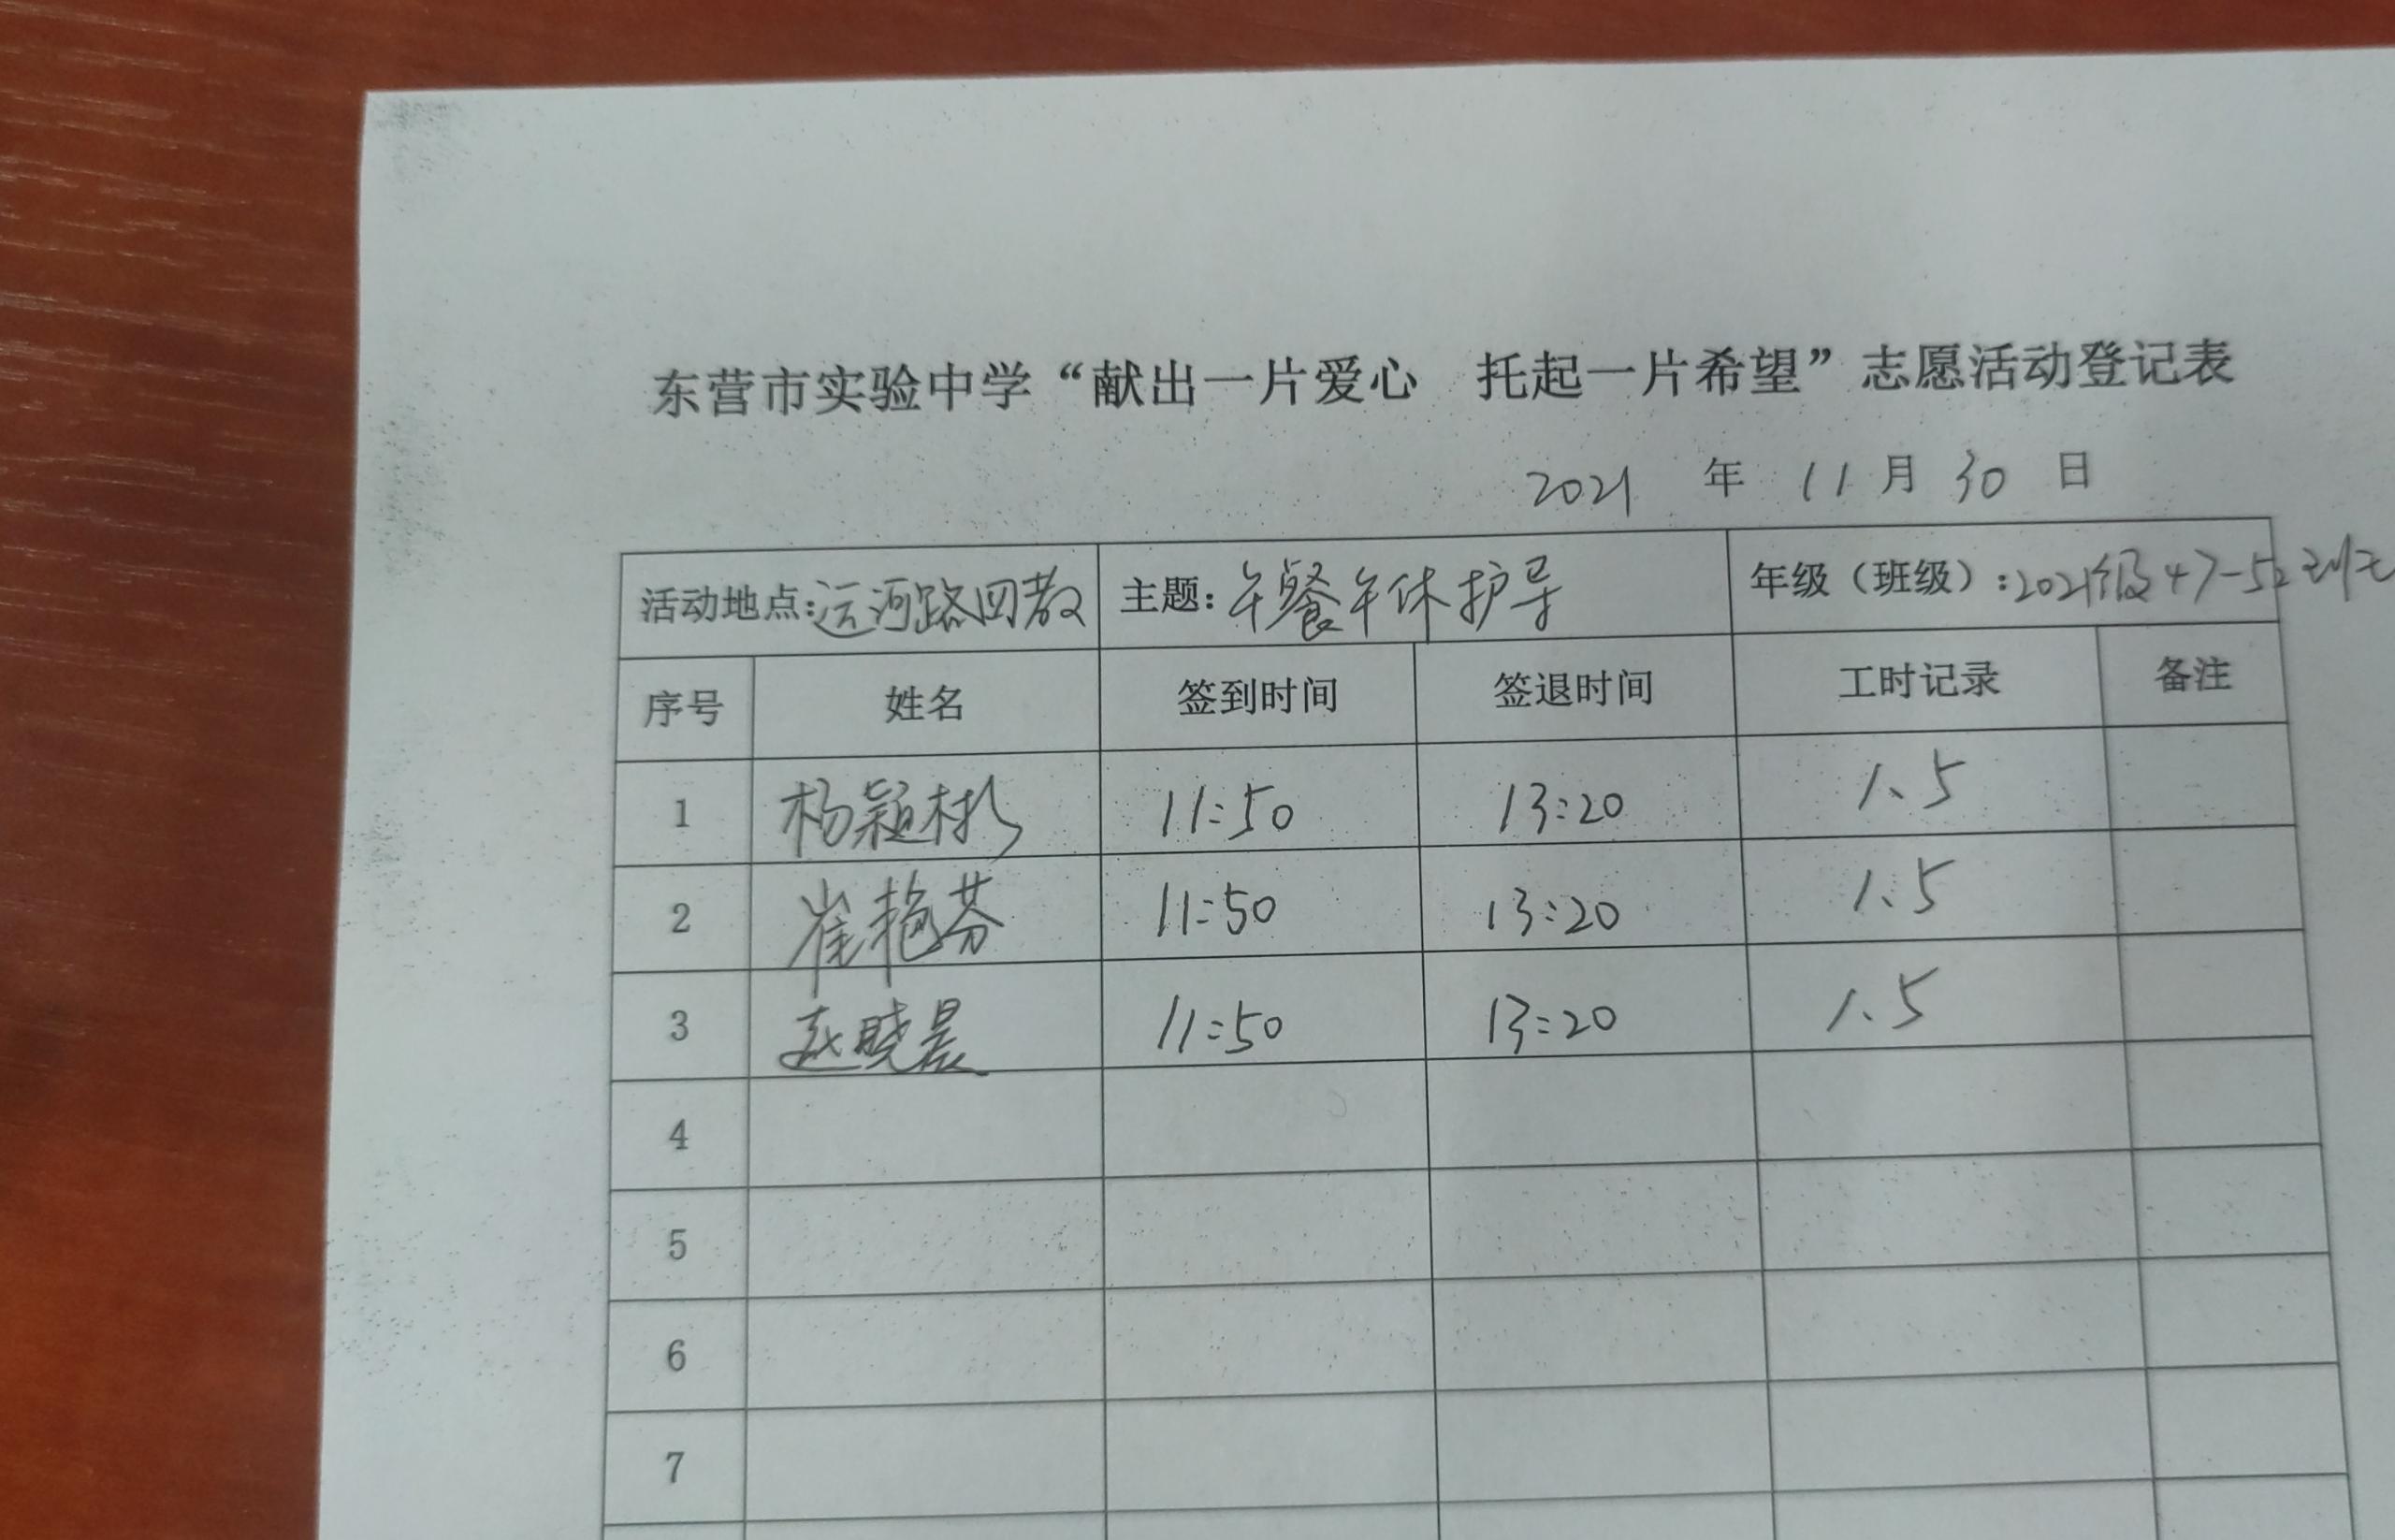 东营市实验中学“献出一片爱心 托起一片希望”志愿活动登记表
2021 年 11 月 30 日
活动地点:运河路四教 主题:午餐午休护导 年级（班级）:2021级47-52
序号 姓名 签到时间 签退时间 工时记录 备注
1 杨颖彬 11:50 13:20 1.5
2 崔艳芬 11:50 13:20 1.5
3 赵晓晨 11:50 13:20 1.5
4
5
6
7